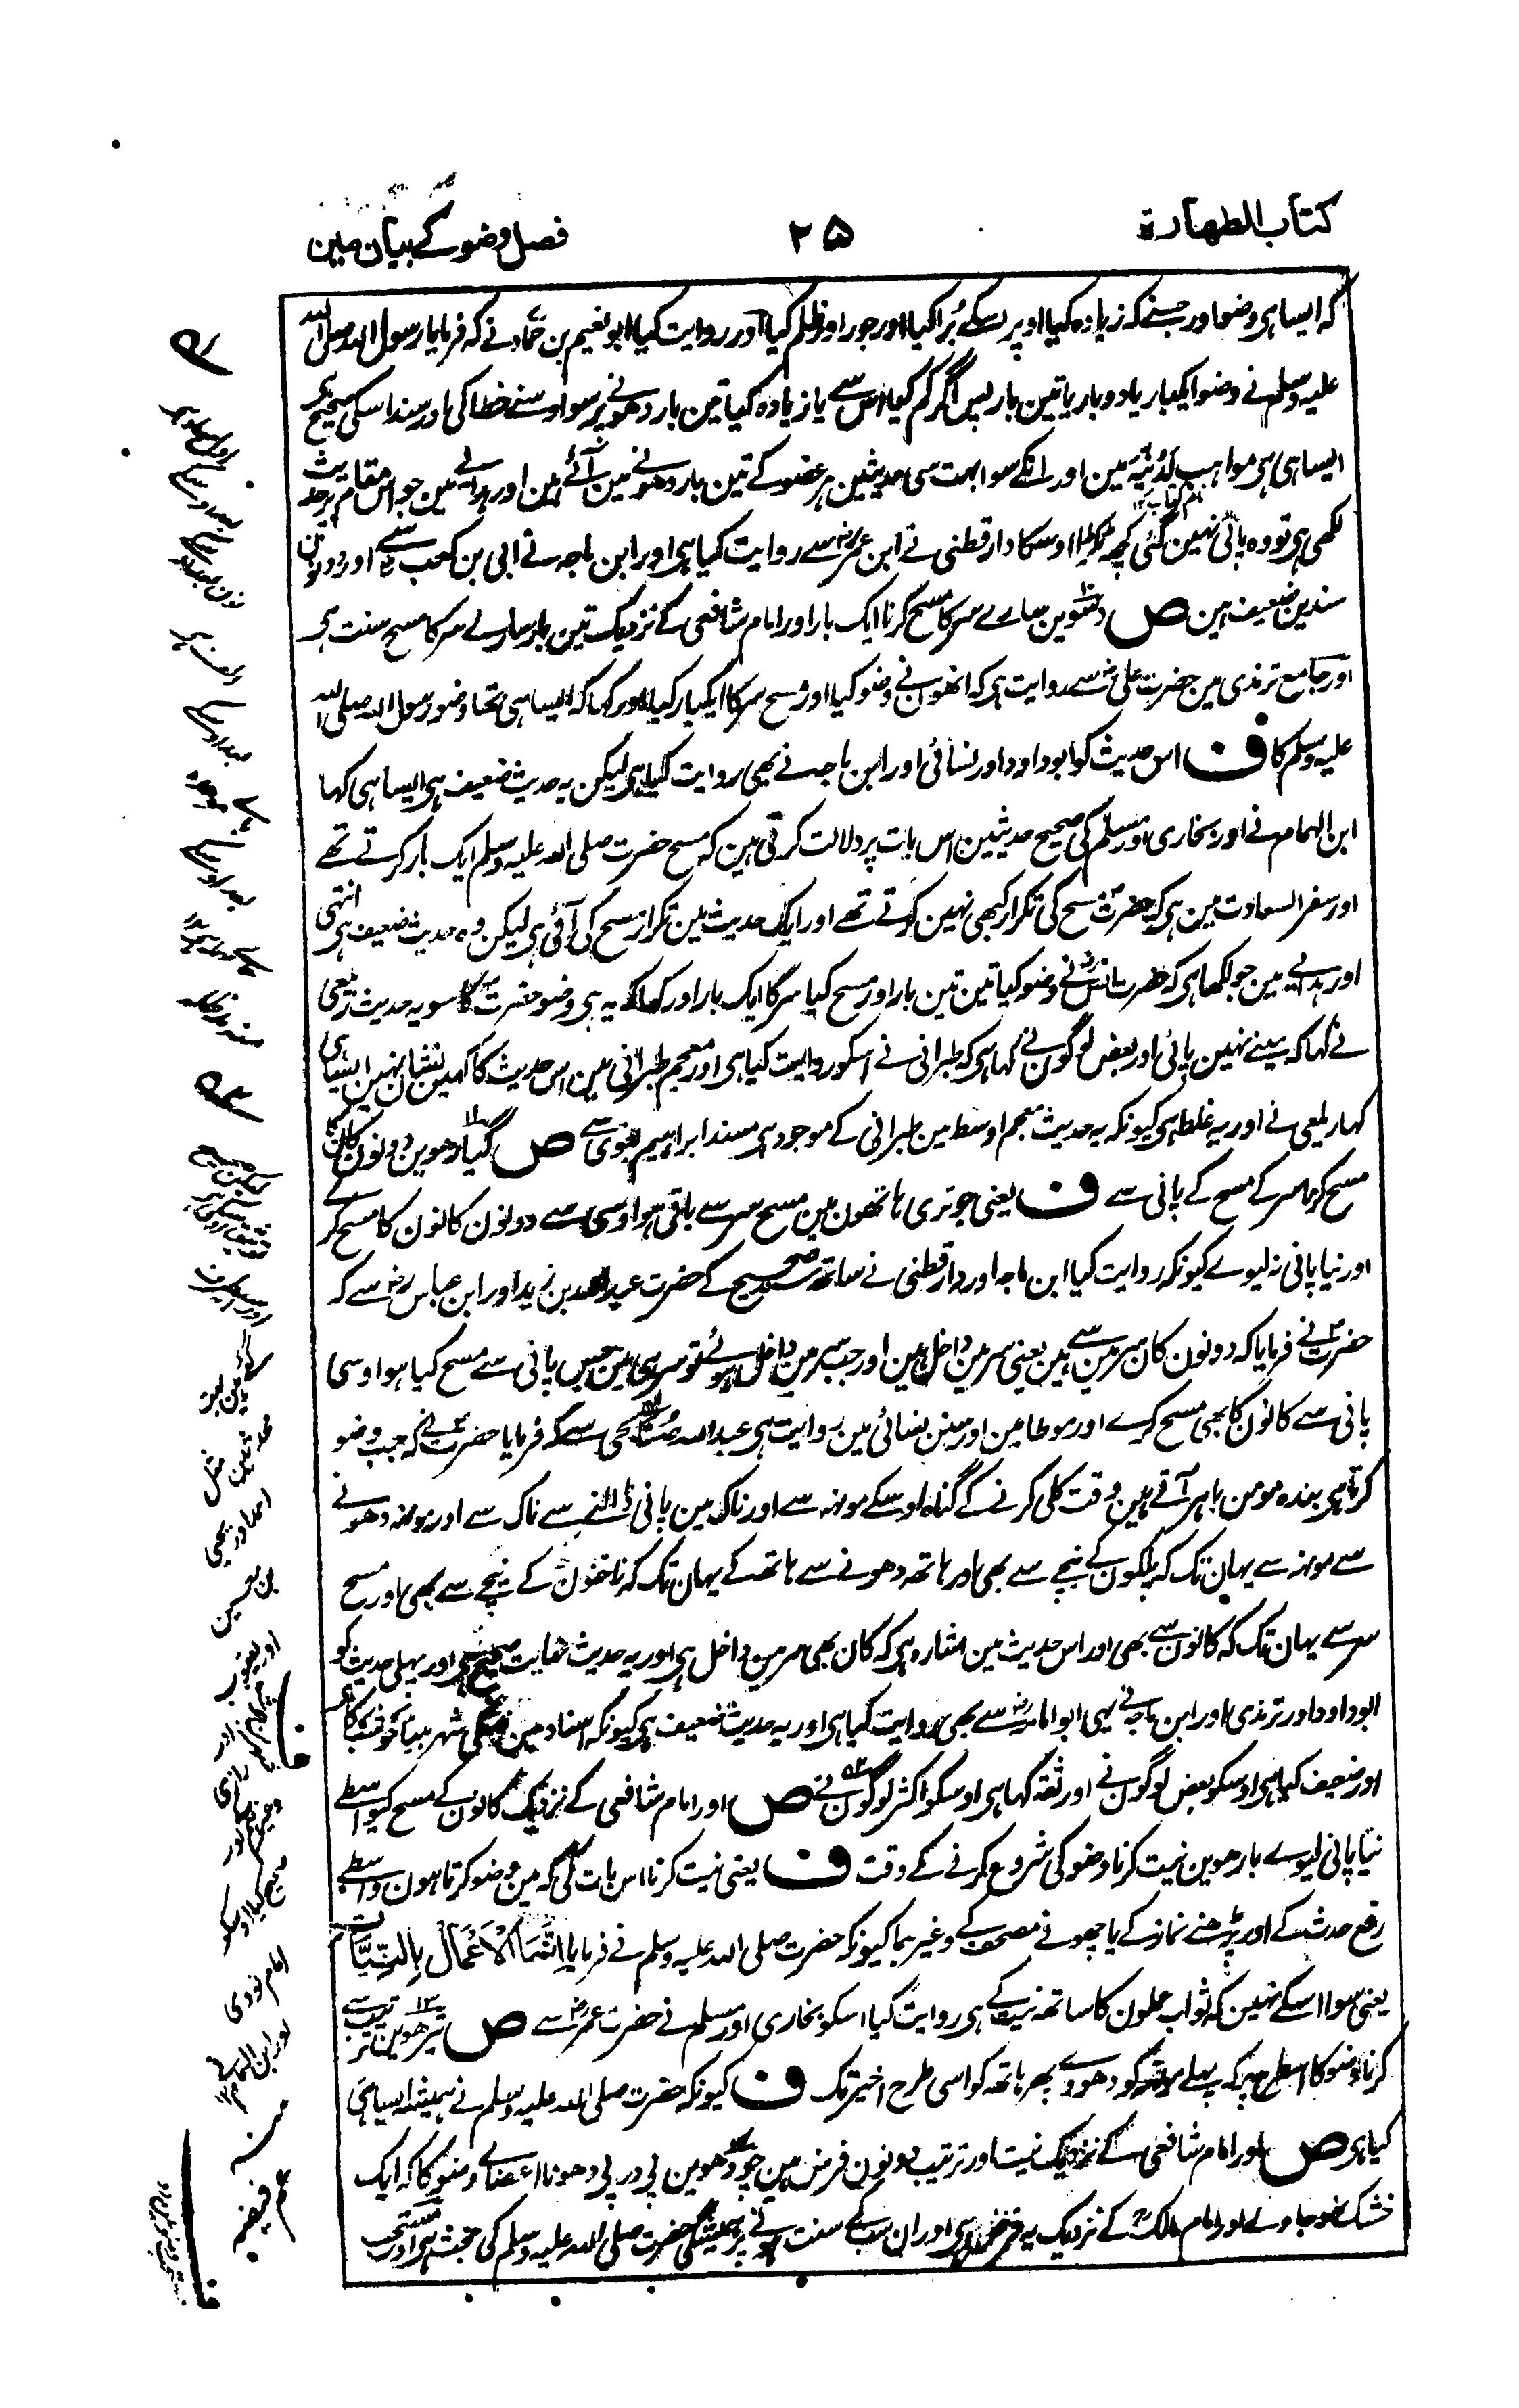 کتاب الطهارة
۲۵
فصل وضو کے بیان مین
کہ ایسا ہی وضو اور جسنے کہ زیادہ کیا اوپر اسکے بُرا کیا اور جور اور ظلم کیا اور روایت کیا ابو نعیم بن حماد نے کہ فرمایا رسول اللہ صلی اللہ
علیہ وسلم نے وضو ایکبار یا دو بار یا تین بار پس اگر کم کیا اس سے یا زیادہ کیا تین بار دھونے پر سو اوسنے خطا کی اور سند اسکی صحیح ہی
ایسا ہی ہی مواہب لدُنیّہ مین اور انکے سوا بہت سی حدیثین ہر عضو کے تین بار دھونے مین آئے ہین اور ہدایے مین جو اس مقام پر حدیث
لکھی ہی تو وہ پائی نہین گئی کچھ ٹکڑا اوسکا دارقطنی نے ابن عمر رض سے روایت کیا ہی اور ابن ماجہ نے ابی بن کعب سے اور دونون
سندین ضعیف ہین ص دسوین سارے سر کا مسح کرنا ایک بار اور امام شافعی کے نزدیک تین بار سارے سر کا مسح سنت ہی
اور جامع ترمذی مین حضرت علی رض سے روایت ہی کہ انھون نے وضو کیا اور مسح سر کا ایکبار کیا اور کہا کہ ایسا ہی تھا وضو رسول اللہ صلی اللہ
علیہ وسلم کا ف اس حدیث کو ابوداود اور نسائی اور ابن ماجہ نے بھی روایت کیا ہی لیکن یہ حدیث ضعیف ہی ایسا ہی کہا
ابن الہمام نے اور بخاری اور مسلم کی صحیح حدیثین اس بات پر دلالت کرتی ہین کہ مسح حضرت صلی اللہ علیہ وسلم ایک بار کرتے تھے
اور سفر السعادت مین ہی کہ حضرت مسح کی تکرار کبھی نہین کرتے تھے اور ایک حدیث مین تکرار مسح کی آئی ہی لیکن وہ حدیث ضعیف ہی انتہی
اور ہدایے مین جو لکھا ہی کہ حضرت انس رض نے وضو کیا تین تین بار اور مسح کیا سر کا ایک بار اور کہا کہ یہ ہی وضو حضرت کا سو یہ حدیث زیلعی
نے کہا کہ مینے نہین پائی اور بعض لوگون نے کہا ہی کہ طبرانی نے اسکو روایت کیا ہی اور معجم طبرانی مین اس حدیث کا کہین نشان نہین ایسا ہی
کہا زیلعی نے اور یہ غلط ہی کیونکہ یہ حدیث معجم اوسط مین طبرانی کے موجود ہی مسند ابراہیم بغوی سے ص گیارھوین دونون کان کا
مسح کرنا سر کے مسح کے پانی سے ف یعنی جو تری ہاتھون مین مسح سر سے باقی ہو اوسی سے دونون کانون کا مسح کرے
اور نیا پانی نہ لیوے کیونکہ روایت کیا ابن ماجہ اور دارقطنی نے ساتھ سند صحیح کے حضرت عبداللہ بن زید اور ابن عباس رض سے کہ
حضرت نے فرمایا کہ دونون کان سر مین سے ہین یعنی سر مین داخل ہین اور جب سر مین داخل ہوئے تو سر ہی مین جس پانی سے مسح کیا ہو اوسی
پانی سے کانون کا بھی مسح کرے اور موطا مین اور سنن نسائی مین روایت ہی عبداللہ صُنابحی سے کہ فرمایا حضرت نے کہ جب وضو
کرتا ہی بندہ مومن باہر آتے ہین وقت کلی کرنے کے گناہ اوسکے مونہہ سے اور ناک مین پانی ڈالنے سے ناک سے اور مونہہ دھونے
سے مونہہ سے یہان تک کہ پلکون کے نیچے سے بھی اور ہاتھ دھونے سے ہاتھ کے یہان تک کہ ناخنون کے نیچے سے بھی اور مسح
سر سے یہان تک کہ کانون سے بھی اور اس حدیث مین اشارہ ہی کہ کان بھی سر مین داخل ہی اور یہ حدیث نہایت صحیح ہی اور پہلی حدیث کو
ابوداود اور ترمذی اور ابن ماجہ نے یہی ابو امامہ رض سے بھی روایت کیا ہی اور یہ حدیث ضعیف ہی کیونکہ اسناد مین اسکی شہر بن حوشب کا
اور ضعیف کیا ہی اوسکو بعض لوگون نے اور ثقہ کہا ہی اوسکو اکثر لوگون نے ص اور امام شافعی کے نزدیک کانون کے مسح کیواسطے
نیا پانی لیوے بارھوین نیت کرنا وضو کی شروع کرنے کے وقت ف یعنی نیت کرنا اس بات کی کہ مین وضو کرتا ہون واسطے
رفع حدث کے اور پڑھنے نماز کے یا چھونے مصحف کے وغیرہا کیونکہ حضرت صلی اللہ علیہ وسلم نے فرمایا اِنَّمَا الْاَعْمَالُ بِالنِّیَّات
یعنی سوا اسکے نہین کہ ثواب عملون کا ساتھ نیت کے ہی روایت کیا اسکو بخاری اور مسلم نے حضرت عمر رض سے ص تیرھوین ترتیب سے
کرنا وضو کا اسطرح پر کہ پہلے مونہہ کو دھووے پھر ہاتھ کو اسی طرح اخیر تک ف کیونکہ حضرت صلی اللہ علیہ وسلم نے ہمیشہ ایسا ہی
کیا ہی ص اور امام شافعی کے نزدیک نیت اور ترتیب دونون فرض ہین چودھوین پی در پی دھونا اعضاے وضو کا کہ ایک
خشک نہو جاوے اور امام مالک رح کے نزدیک یہ فرض ہی اور ان سب کے سنت ہونے پر ہمیشگی حضرت صلی اللہ علیہ وسلم کی حجت ہی اور مستحب